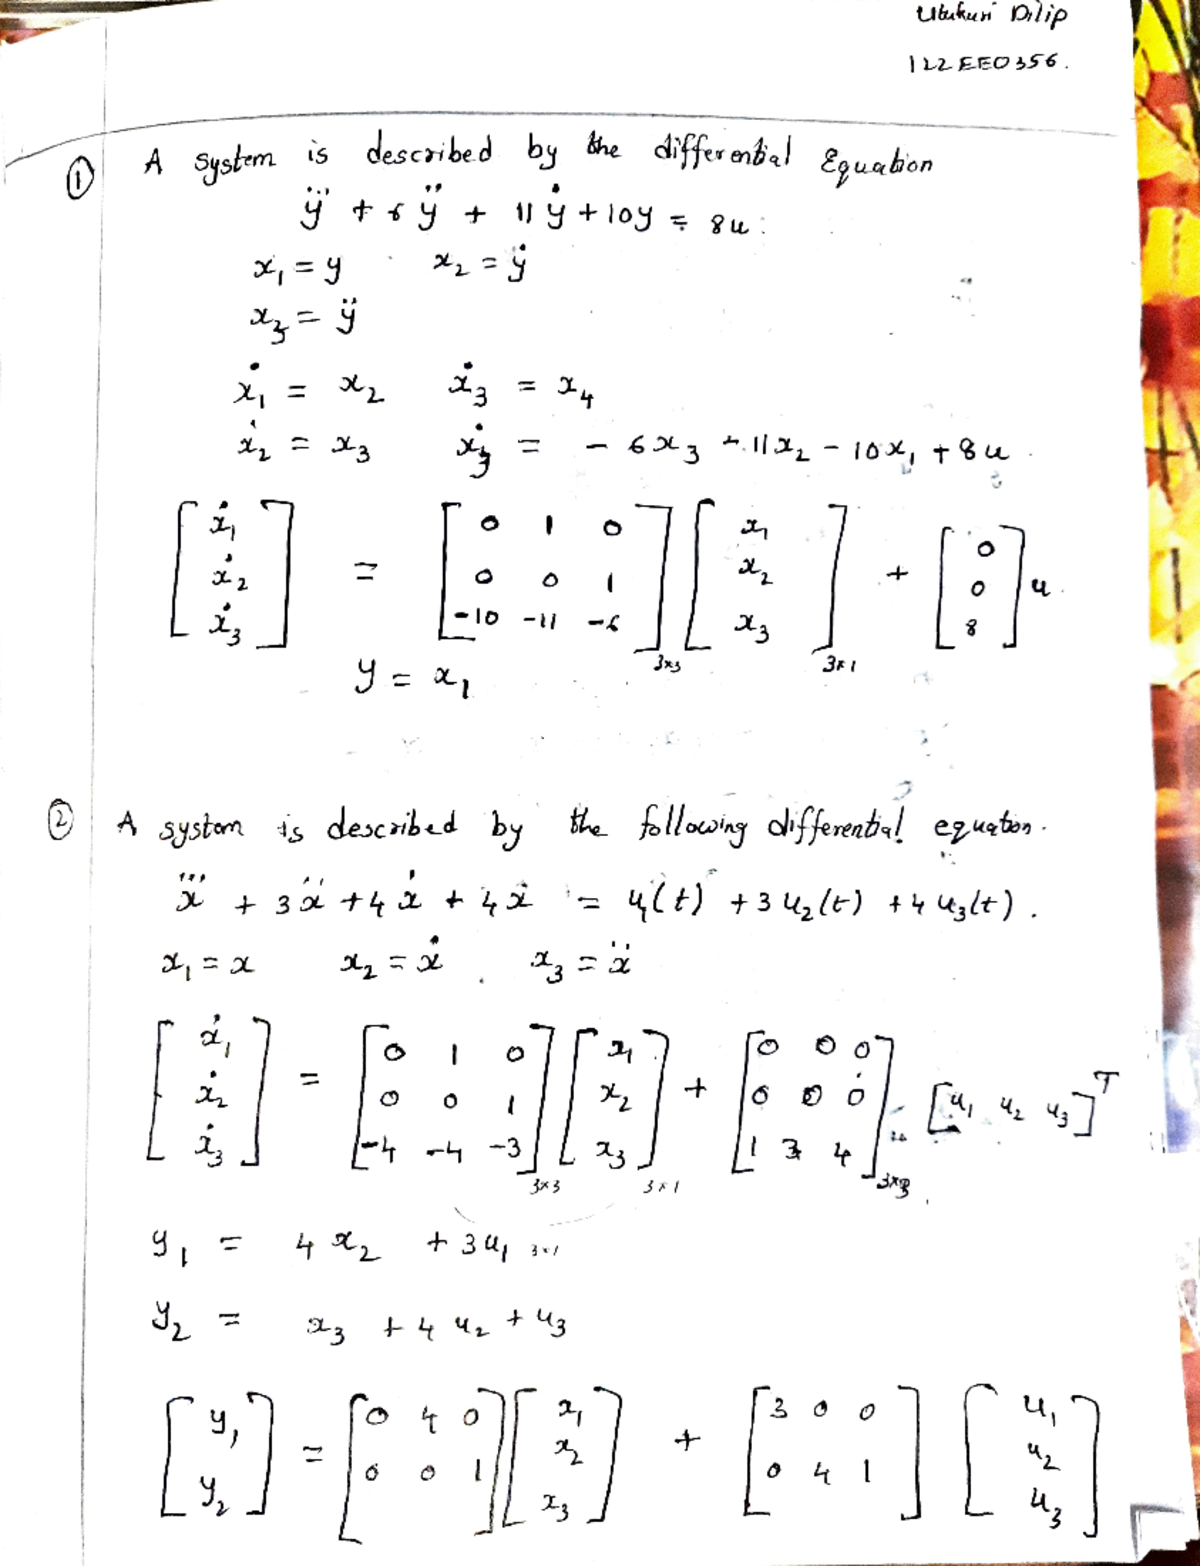 Utukuri Dilip
122EE0356.
① A system is described by the differential Equation
y⃛ + 6ÿ + 11ẏ + 10y = 8u
x₁ = y x₂ = ẏ
x₃ = ÿ
ẋ₁ = x₂ ẋ₃ = x₄
ẋ₂ = x₃ ẋ₃ = - 6x₃ - 11x₂ - 10x₁ + 8u
[ẋ₁ ẋ₂ ẋ₃] = [0 1 0; 0 0 1; -10 -11 -6]3×3 [x₁ x₂ x₃]3×1 + [0 0 8] u
y = x₁
② A system is described by the following differential equation.
x⃛ + 3ẍ + 4ẋ + 4x = u₁(t) + 3u₂(t) + 4u₃(t).
x₁ = x x₂ = ẋ x₃ = ẍ
[ẋ₁ ẋ₂ ẋ₃] = [0 1 0; 0 0 1; -4 -4 -3]3×3 [x₁ x₂ x₃]3×1 + [0 0 0; 0 0 0; 1 3 4]3×3 [u₁ u₂ u₃]ᵀ
y₁ = 4x₂ + 3u₁ 3×1
y₂ = x₃ + 4u₂ + u₃
[y₁ y₂] = [0 4 0; 0 0 1] [x₁ x₂ x₃] + [3 0 0; 0 4 1] [u₁ u₂ u₃]